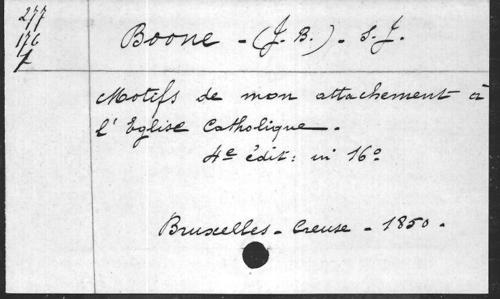 277
176
Boone - (J. B.) - S. J.
Motifs de mon attachement à
l'Eglise Catholique.
4e édit: in 16º
Bruxelles - Creuse - 1850.